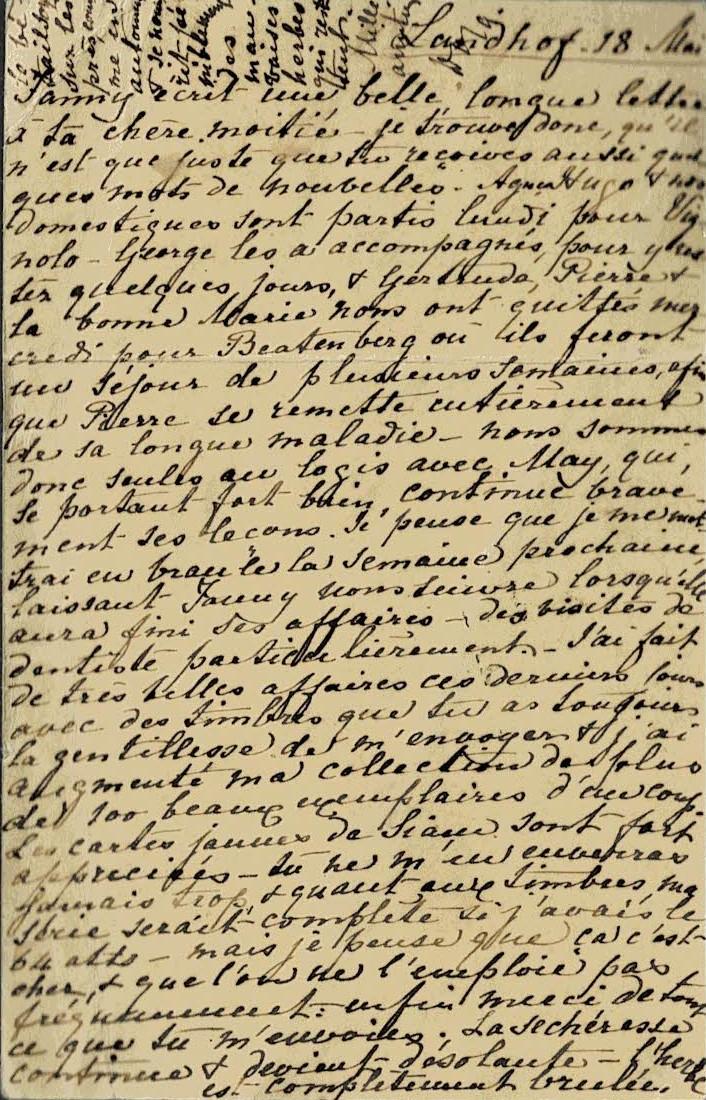 Landhof. 18 Mai
Fanny écrit une belle, longue lettre
à ta chère moitié – je trouve donc, qu'il
n'est que juste que tu reçoives aussi quel
ques mots de nouvelles. Agnes Hugo & nos
domestiques sont partis lundi pour Vig
nolo – George les a accompagnés, pour y res
ter quelques jours, & Gertrude, Pierre &
la bonne Marie nous ont quittés mer
credi pour Beatenberg où ils feront
un séjour de plusieurs semaines, afin
que Pierre se remette entièrement
de sa longue maladie – nous sommes
donc seules au logis avec May, qui,
se portant fort bien, continue brave-
ment ses leçons. Je pense que je me met
trai en branle la semaine prochaine,
laissant Fanny nous suivre lorsqu'elle
aura fini ses affaires – des visites de
dentiste particulièrement. – J'ai fait
de très belles affaires ces derniers jours
avec des timbres que tu as toujours
la gentillesse de m'envoyer & j'ai
augmenté ma collection de plus
de 100 beaux exemplaires d'un coup.
Les cartes jaunes de Siam sont fort
appréciées – tu ne m'en enverras
jamais trop, & quant aux timbres, ma
série serait complète si j'avais le
64 atts – mais je pense que ça c'est
cher, & que l'on ne l'emploie pas
fréquemment: enfin merci de tout
ce que tu m'envoies. La sécheresse
continue & devient désolante – l'herbe
est complètement brulée.
le bé
tail
sur les
près, com
me en
automne
& se nour
rit pé
niblement
des
mau-
vaises
herbes
qui res
tent.
Mille
amitiés